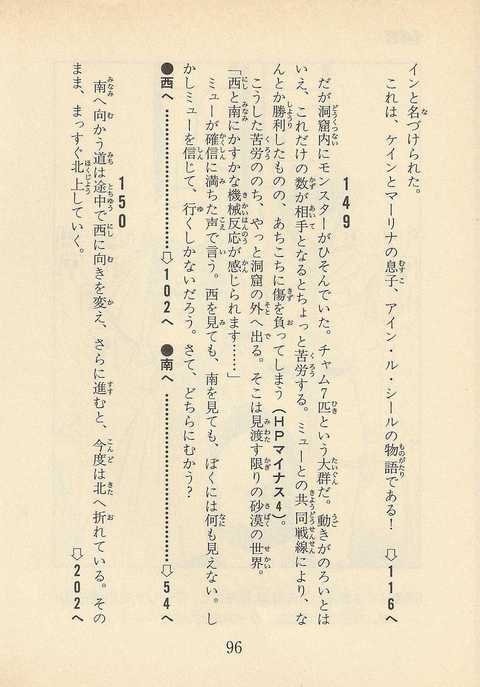 インと名づけられた。
これは、ケインとマーリナの息子、アイン・ル・シールの物語である！ ⇨116へ
149
だが洞窟内にモンスターがひそんでいた。チャム7匹という大群だ。動きがのろいとは
いえ、これだけの数が相手となるとちょっと苦労する。ミューとの共同戦線により、な
んとか勝利したものの、あちこちに傷を負ってしまう（HPマイナス4）。
こうした苦労ののち、やっと洞窟の外へ出る。そこは見渡す限りの砂漠の世界。
「西と南にかすかな機械反応が感じられます……」
ミューが確信に満ちた声で言う。西を見ても、南を見ても、ぼくには何も見えない。し
かしミューを信じて、行くしかないだろう。さて、どちらにむかう？
●西へ……………………⇨102へ ●南へ……………………⇨54へ
150
南へ向かう道は途中で西に向きを変え、さらに進むと、今度は北へ折れている。その
まま、まっすぐ北上していく。 ⇨202へ
96